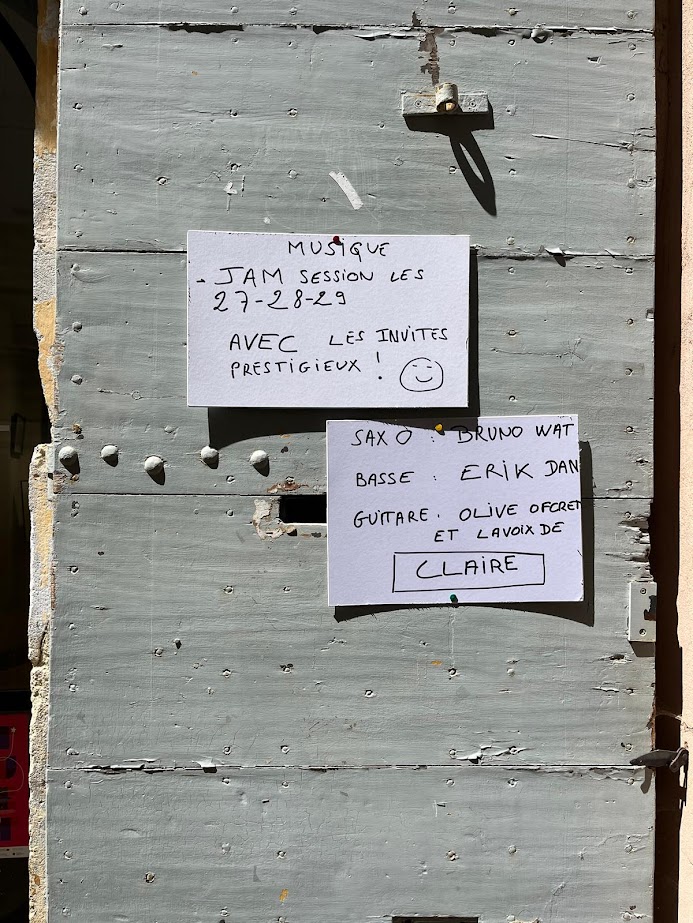 MUSIQUE
- JAM SESSION LES
27-28-29
AVEC LES INVITES
PRESTIGIEUX !
SAXO : BRUNO WAT
BASSE : ERIK DAN
GUITARE. OLIVE OFCRET
ET LAVOIX DE
CLAIRE